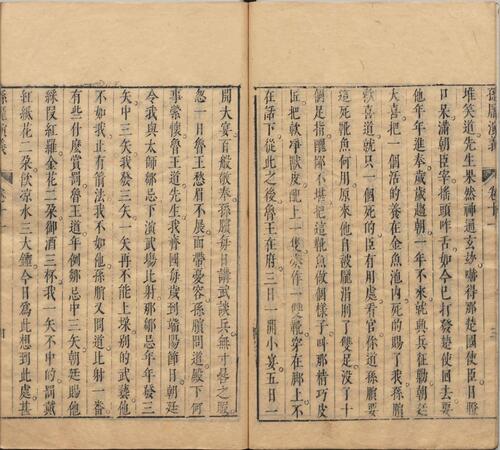 孫龐演義
卷十一
堆笑道先生果然神通玄妙嚇得那楚國使臣目瞪
口呆滿朝臣宰搖頭咋舌如今已打發楚使回去要
他年年進奉歲歲趨朝一年不來就興兵征勦朝廷
大喜把一個活的養在金魚池內死的賜了我孫臏
歡喜道就只一個死的臣有用處看官你道孫臏要
這死靴魚何用原來他自被龐涓刖了雙足沒了十
個足指醜鄙不堪把這靴魚做個樣子叫那精巧皮
匠把軟淨獸皮
在話下從此之後魯王在府三日一開小宴五日一
開大宴百般敬奉孫臏每日講武談兵無寸晷之暇
忽一日魯王愁眉不展面帶憂容孫臏問道殿下何
事縈懷魯王道先生我齊國每歲到端陽節日朝廷
令我與太師鄒忌下演武場比射那鄒忌年年發三
矢中三矢我發三矢一矢再不能上垛別的武藝他
不如我止有箭法我不如他孫臏又問道比射一番
有些什麼賞罰魯王道年例鄒忌中三矢朝廷賜他
綵段紅羅金花二朶御酒三杯我一矢不中的罰戴
紅紙花二朶飲涼水三大鐘今日爲此想到此處甚
孫龐演義
卷十一
四